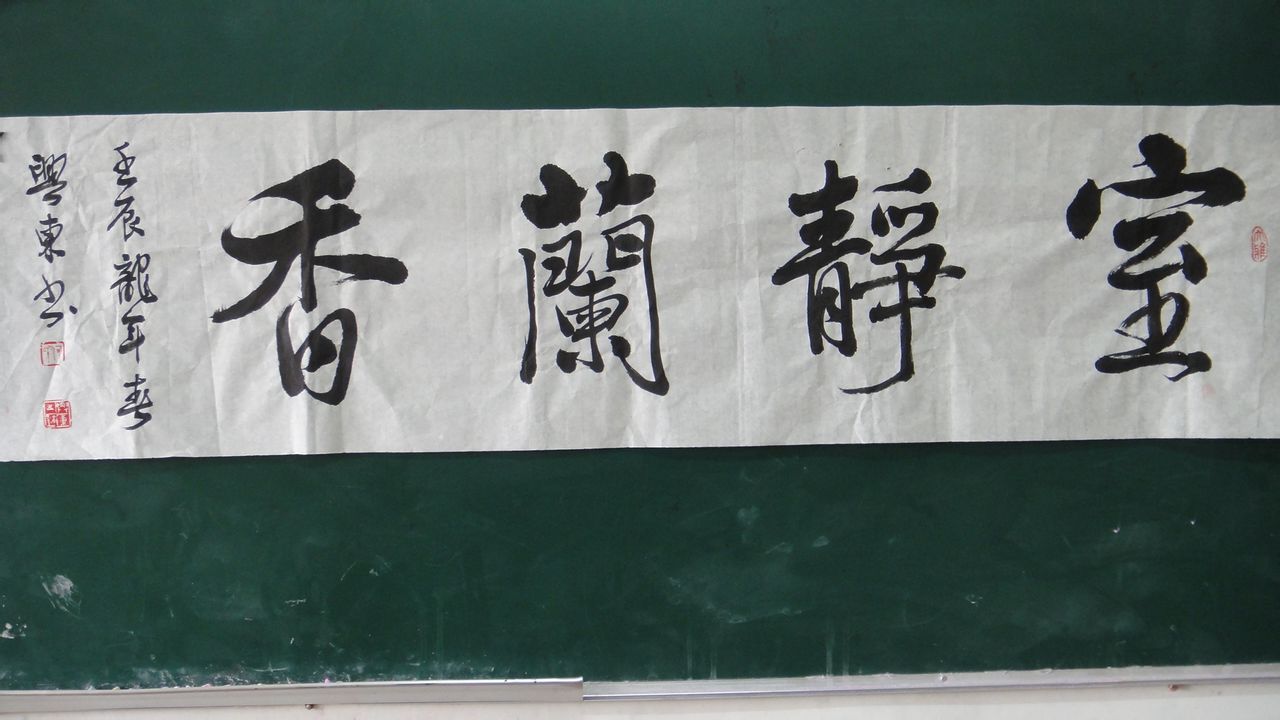 室靜蘭香
壬辰龍年春
興東书